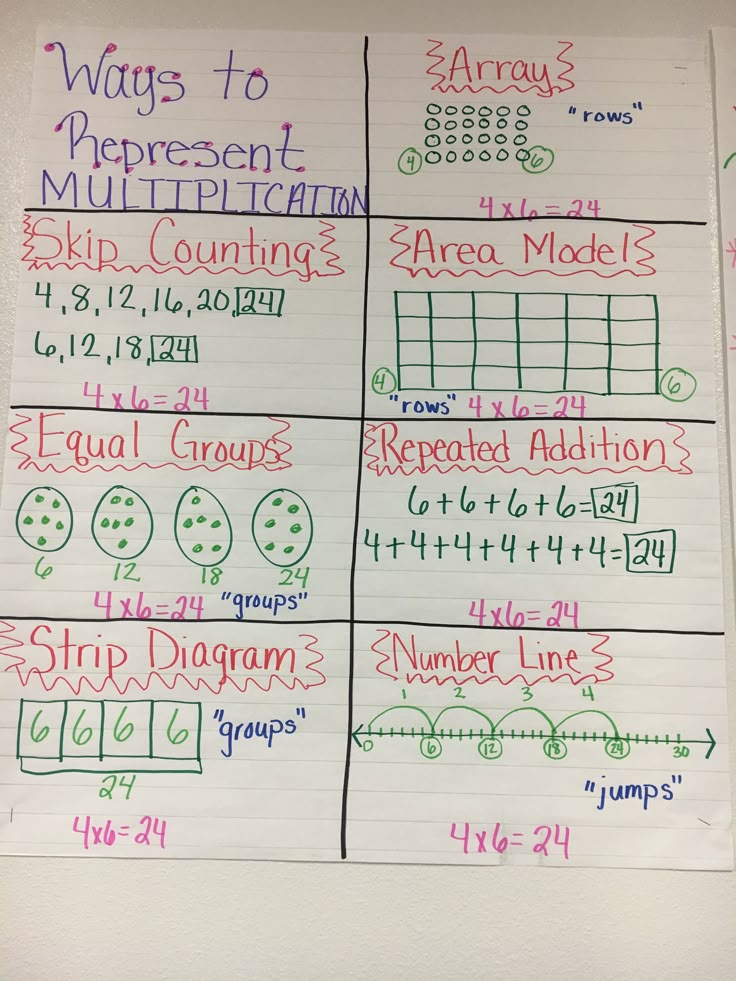 Ways to
Represent
MULTIPLICATION
Array
"rows"
4
6
4 x 6 = 24
Skip Counting
4, 8, 12, 16, 20, 24
6, 12, 18, 24
4 x 6 = 24
Area Model
4
6
"rows" 4 x 6 = 24
Equal Groups
6 12 18 24
4 x 6 = 24 "groups"
Repeated Addition
6+6+6+6=24
4+4+4+4+4+4=24
4x6=24
Strip Diagram
6 6 6 6 "groups"
24
4x6=24
Number Line
1 2 3 4
0 6 12 18 24 30
"jumps"
4x6=24